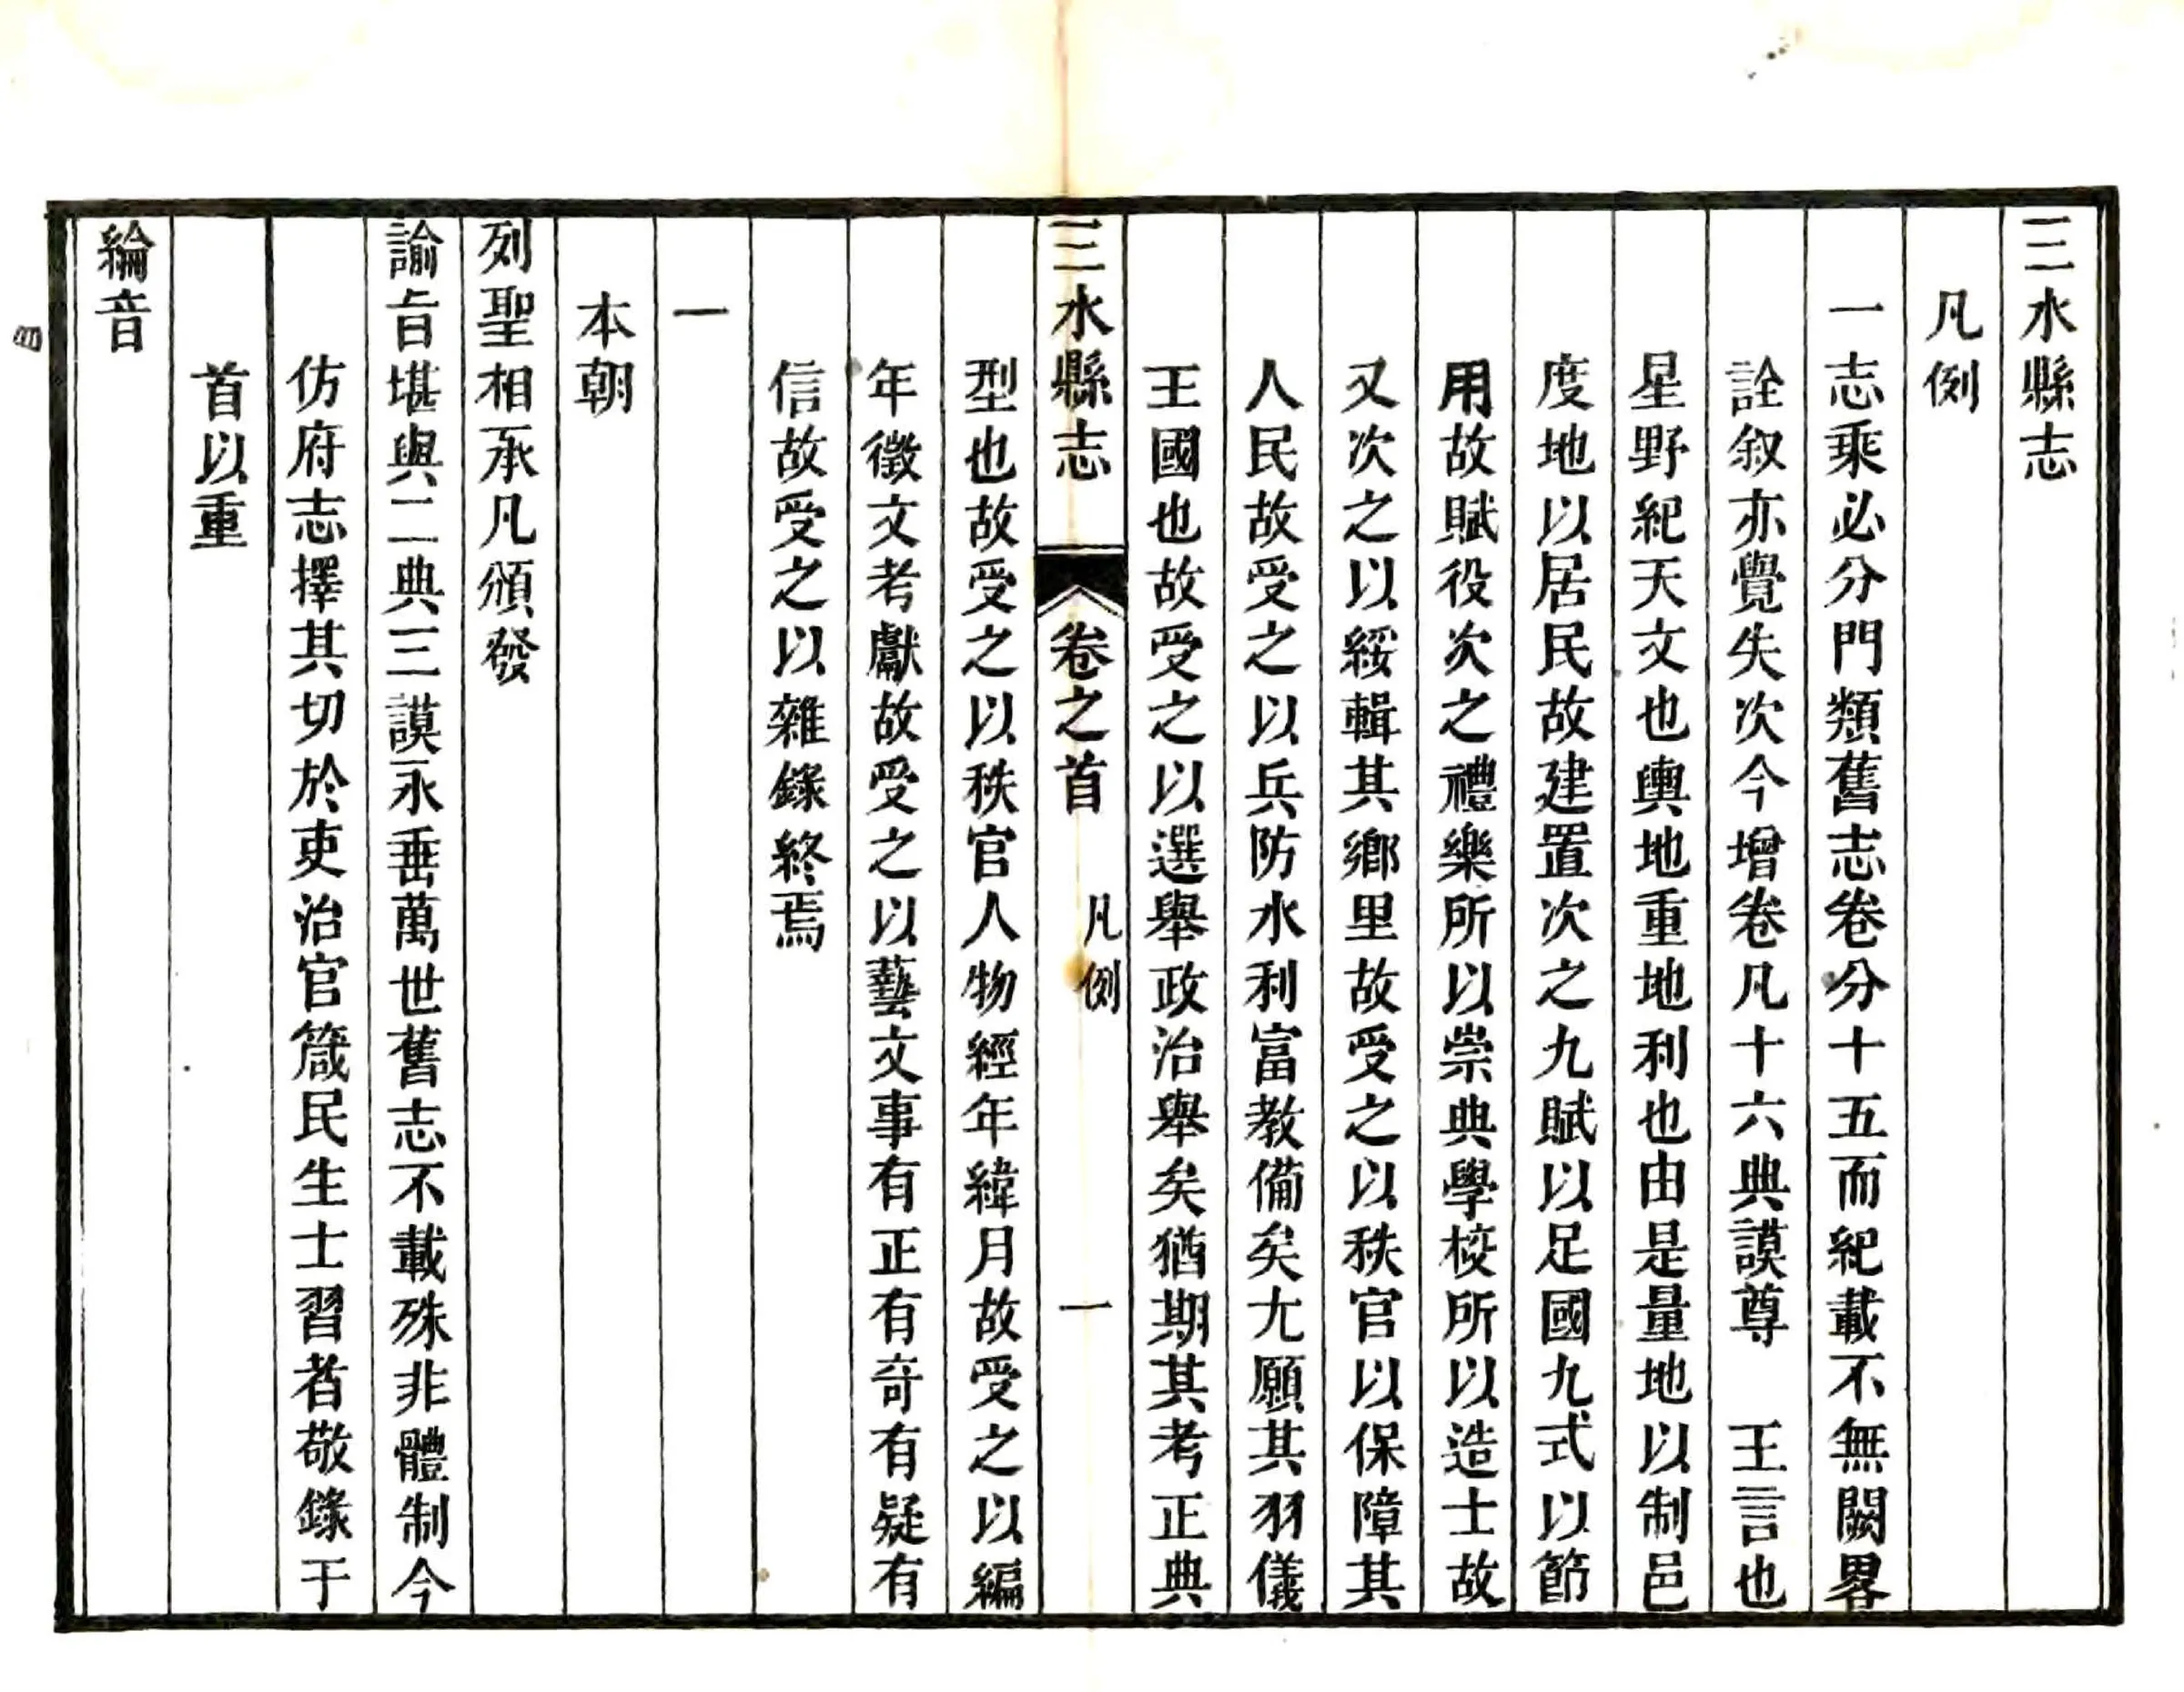 三水縣志
凡例
一志乘必分門類舊志卷分十五而紀載不無闕畧
詮叙亦覺失次今增卷凡十六典謨尊　王言也
星野紀天文也輿地重地利也由是量地以制邑
度地以居民故建置次之九賦以足國九式以節
用故賦役次之禮樂所以崇典學校所以造士故
又次之以綏輯其鄉里故受之以秩官以保障其
人民故受之以兵防水利富教備矣尤願其羽儀
王國也故受之以選舉政治舉矣猶期其考正典
三水縣志　卷之首　凡例　一
型也故受之以秩官人物經年緯月故受之以編
年徵文考獻故受之以藝文事有正有奇有疑有
信故受之以雜錄終焉
一
本朝
列聖相承凡頒發
諭旨堪與二典三謨永垂萬世舊志不載殊非體制今
仿府志擇其切於吏治官箴民生士習者敬錄于
首以重
綸音